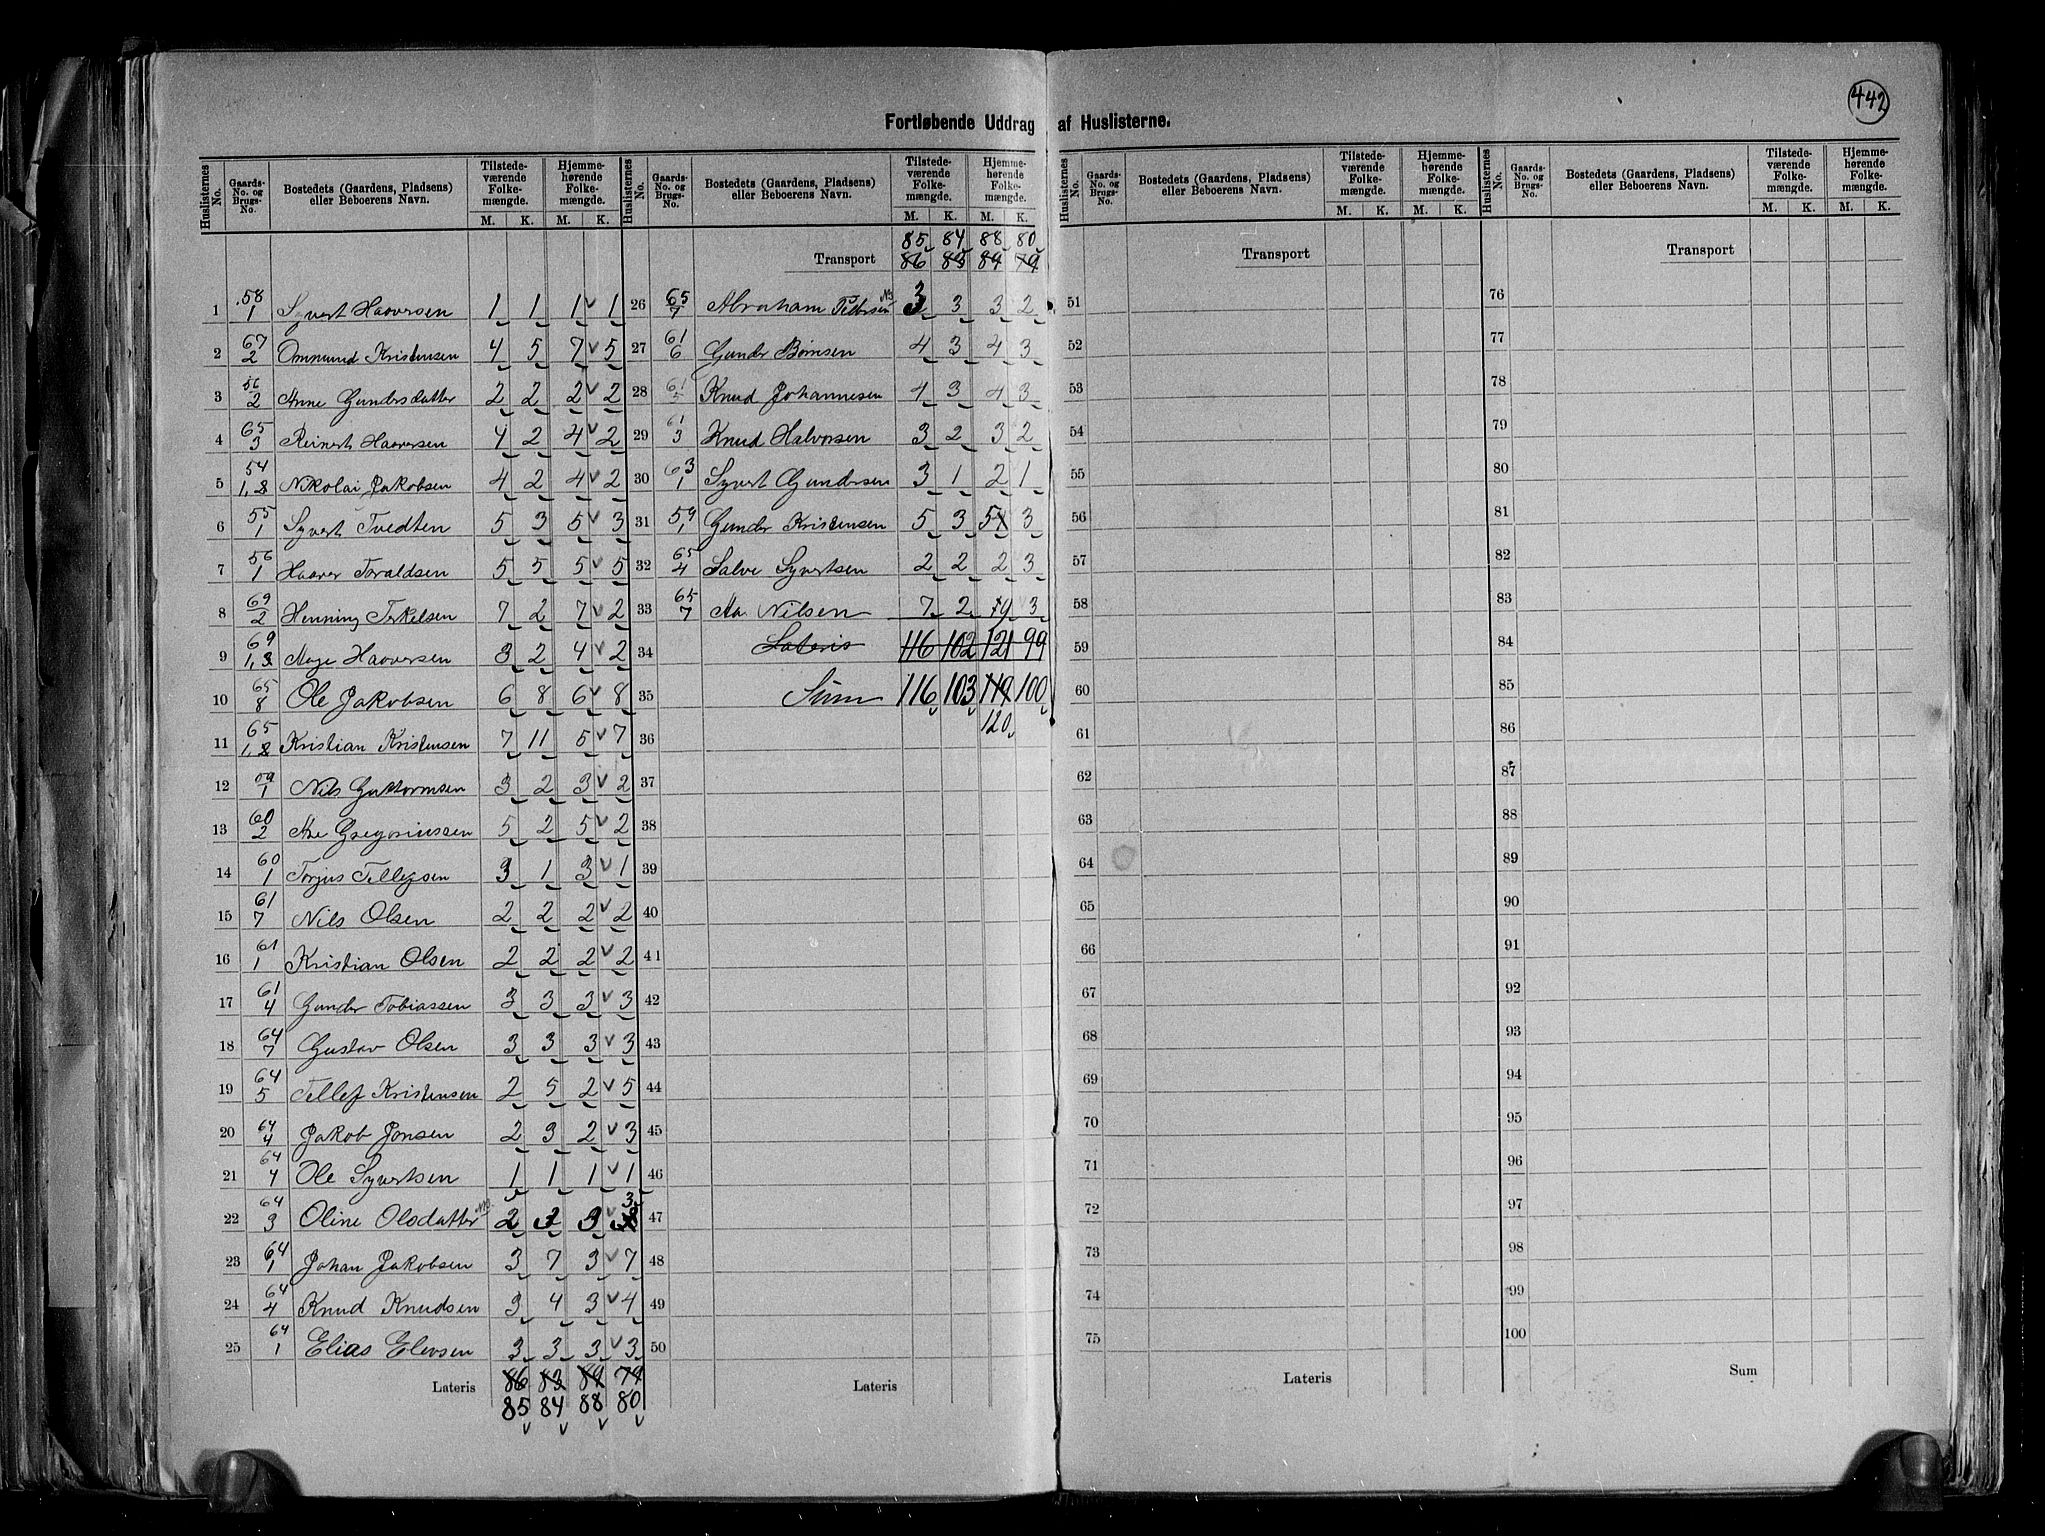 442
Fortløbende Uddrag af Huslisterne.
Huslisternes No. | Gaards-No. og Brugs-No. | Bostedets (Gaardens, Pladsens) eller Beboerens Navn. | Tilstedeværende Folkemængde. M. K. | Hjemmehørende Folkemængde. M. K.
1 | 58/1 | Syvert Haaversen | 1 | 1 | 1 v | 1
2 | 67/2 | Ommund Kristensen | 4 | 5 | 7 v | 5
3 | 56/2 | Anne Gundersdatter | 2 | 2 | 2 v | 2
4 | 65/3 | Reinert Haaversen | 4 | 2 | 4 v | 2
5 | 54/1,2 | Nikolai Jakobsen | 4 | 2 | 4 v | 2
6 | 55/1 | Syvert Tvedten | 5 | 3 | 5 v | 3
7 | 56/1 | Haaver Toraldsen | 5 | 5 | 5 v | 5
8 | 69/2 | Henning Terkelsen | 7 | 2 | 7 v | 2
9 | 69/1,3 | Aage Haaversen | 3 | 2 | 4 v | 2
10 | 65/8 | Ole Jakobsen | 6 | 8 | 6 v | 8
11 | 65/1,2 | Kristian Kristensen | 7 | 11 | 5 v | 7
12 | 59/1 | Nils Guttormsen | 3 | 2 | 3 v | 2
13 | 60/2 | Are Gregoriussen | 5 | 2 | 5 v | 2
14 | 60/1 | Torjus Tellefsen | 3 | 1 | 3 v | 1
15 | 61/7 | Nils Olsen | 2 | 2 | 2 v | 2
16 | 61/1 | Kristian Olsen | 2 | 2 | 2 v | 2
17 | 61/4 | Gunder Tobiassen | 3 | 3 | 3 v | 3
18 | 64/7 | Gustav Olsen | 3 | 3 | 3 v | 3
19 | 64/5 | Tellef Kristensen | 2 | 5 | 2 v | 5
20 | 64/4 | Jakob Jonsen | 2 | 3 | 2 v | 3
21 | 64/4 | Ole Syvertsen | 1 | 1 | 1 v | 1
22 | 64/3 | Oline Olsdatter | 2 | 3 | 3 v | 3
23 | 64/1 | Johan Jakobsen | 3 | 7 | 3 v | 7
24 | 64/4 | Knud Knudsen | 3 | 4 | 3 v | 4
25 | 64/1 | Elias Elevsen | 3 | 3 | 3 v | 3
Lateris | 86 | 83 | 89 | 79
85 | 84 | 88 | 80
Huslisternes No. | Gaards-No. og Brugs-No. | Bostedets (Gaardens, Pladsens) eller Beboerens Navn. | Tilstedeværende Folkemængde. M. K. | Hjemmehørende Folkemængde. M. K.
85 | 84 | 88 | 80
Transport | 86 | 83 | 89 | 79
26 | 65/7 | Abraham Pedersen | 3 | 3 | 3 | 2
27 | 61/6 | Gunder Bönsen | 4 | 3 | 4 | 3
28 | 61/5 | Knud Johannesen | 4 | 3 | 4 | 3
29 | 61/3 | Knud Halvorsen | 3 | 2 | 3 | 2
30 | 63/1 | Syvert Gundersen | 3 | 1 | 2 | 1
31 | 59/1 | Gunder Kristensen | 5 | 3 | 5 | 3
32 | 65/4 | Salve Syvertsen | 2 | 2 | 2 | 3
33 | 65/7 | Aa. Nilsen | 7 | 2 | 9 | 3
34 | Lateris | 116 | 102 | 121 | 99
35 | Sum | 116 | 103 | 119 | 100
120
36
37
38
39
40
41
42
43
44
45
46
47
48
49
50
Lateris
Huslisternes No. | Gaards-No. og Brugs-No. | Bostedets (Gaardens, Pladsens) eller Beboerens Navn. | Tilstedeværende Folkemængde. M. K. | Hjemmehørende Folkemængde. M. K.
Transport
51
52
53
54
55
56
57
58
59
60
61
62
63
64
65
66
67
68
69
70
71
72
73
74
75
Lateris
Huslisternes No. | Gaards-No. og Brugs-No. | Bostedets (Gaardens, Pladsens) eller Beboerens Navn. | Tilstedeværende Folkemængde. M. K. | Hjemmehørende Folkemængde. M. K.
Transport
76
77
78
79
80
81
82
83
84
85
86
87
88
89
90
91
92
93
94
95
96
97
98
99
100
Sum